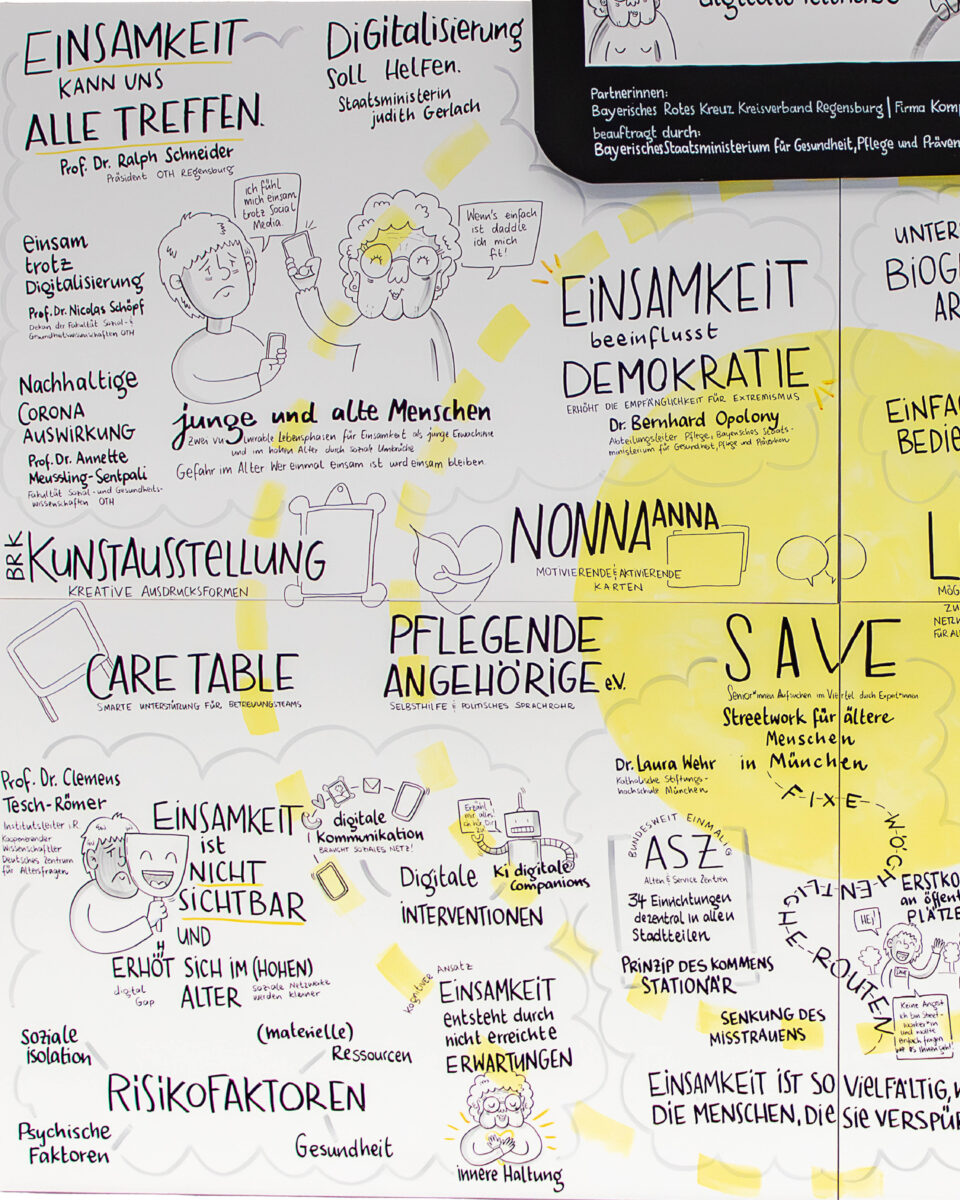 EINSAMKEIT
KANN UNS
ALLE TREFFEN.
Prof. Dr. Ralph Schneider
Präsident OTH Regensburg
DiGitalisierung
Soll Helfen.
Staatsministerin
judith Gerlach
Partnerinnen:
Bayerisches Rotes Kreuz Kreisverband Regensburg | Firma Komp
beauftragt durch:
Bayerisches Staatsministerium für Gesundheit, Pflege und Präven
ich fühl
mich einsam
trotz Social
Media.
Wenn's einfach
ist daddle
ich mich
fit!
einsam
trotz
Digitalisierung
Prof. Dr. Nicolas Schöpf
Dekan der Fakultät Sozial- &
Gesundheitswissenschaften OTH
Nachhaltige
CORONA
AUSWIRKUNG
Prof. Dr. Annette
Meussling-Sentpali
Fakultät Sozial- und Gesundheits-
wissenschaften OTH
junge und alte Menschen
Zwei vulnerable Lebensphasen für Einsamkeit als junge Erwachsene
und im hohen Alter durch soziale Umbrüche
Gefahr im Alter Wer einmal einsam ist wird einsam bleiben.
EINSAMKEIT
beeinflusst
DEMOKRATIE
ERHÖHT DIE EMPFÄNGLICHKEIT FÜR EXTREMISMUS
Dr. Bernhard Opolony
Abteilungsleiter Pflege, Bayerisches Staats-
ministerium für Gesundheit, Pflege und Prävention
UNTER
BiOG
AR
EiNFA
BEDiE
BRK KUNSTAUSSTELLUNG
KREATIVE AUSDRUCKSFORMEN
NONNA ANNA
MOTIVIERENDE & AKTIVIERENDE
KARTEN
L
MÖG
ZU
NETZW
FÜR AL
CARE TABLE
SMARTE UNTERSTÜTZUNG FÜR BETREUUNGSTEAMS
PFLEGENDE
ANGEHÖRIGE e.V.
SELBSTHILFE & POLITISCHES SPRACHROHR
SAVE
Senior*innen Aufsuchen im Viertel durch Expert*innen
Streetwork für ältere
Menschen
in München
Dr. Laura Wehr
Katholische Stiftungs-
hochschule München
FIXE
WÖCHENTLICHE ROUTEN
Prof. Dr. Clemens
Tesch-Römer
Institutsleiter i.R.
Kooperierender
Wissenschaftler
Deutsches Zentrum
für Altersfragen
EINSAMKEIT
ist
NICHT
SICHTBAR
UND
ERHÖHT SICH IM (HOHEN)
ALTER
digital
Gap
soziale Netzwerke
werden kleiner
digitale
Kommunikation
BRAUCHT SOZIALES NETZ!
Erzähl
mir alles!
ich hör Dir
zu!
Digitale
iNTERVENTIONEN
Ki digitale
Companions
BUNDESWEIT EINMALIG
ASZ
Alten & Service Zentren
34 Einrichtungen
dezentral in allen
Stadtteilen
PRiNZiP DES KOMMENS
STATIONÄR
SENKUNG DES
MISSTRAUENS
ERSTKO
an öffent
PLÄTZE
HEJ!
SAVE
Keine Angst
ich bin Street-
worker*in
und wollte
einfach fragen
wie es Ihnen geht!
kognitiver Ansatz
EINSAMKEIT
entsteht durch
nicht erreichte
ERWARTUNGEN
innere Haltung
Soziale
isolation
(materielle)
Ressourcen
RiSiKOFAKTOREN
Psychische
Faktoren
Gesundheit
EINSAMKEIT IST SO VIELFÄLTIG, W
DIE MENSCHEN, DIE SIE VERSPÜR